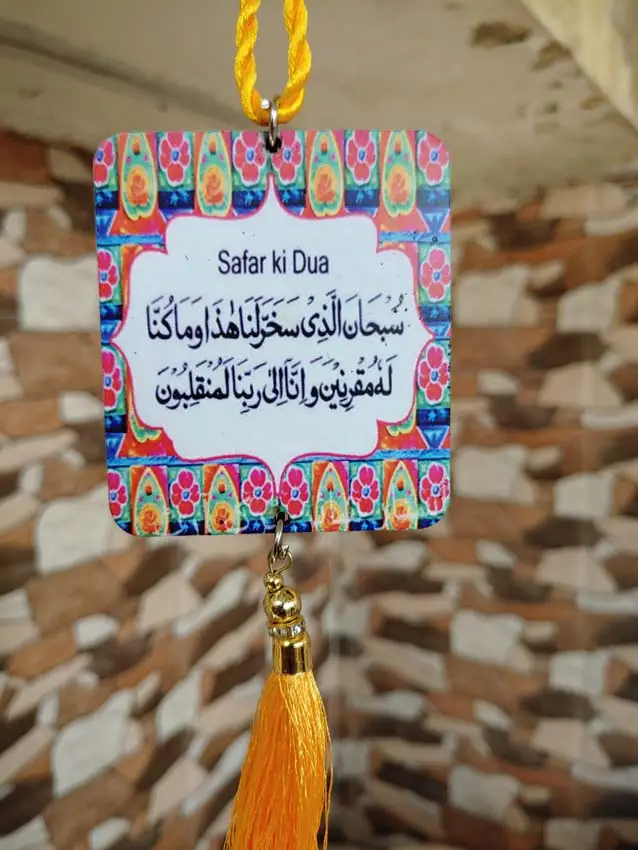 Safar ki Dua
سُبْحَانَ الَّذِیْ سَخَّرَلَنَا هٰذَا وَمَا كُنَّا
لَهٗ مُقْرِنِیْنَ وَ اِنَّاۤ اِلٰی رَبِّنَا لَمُنْقَلِبُوْنَ